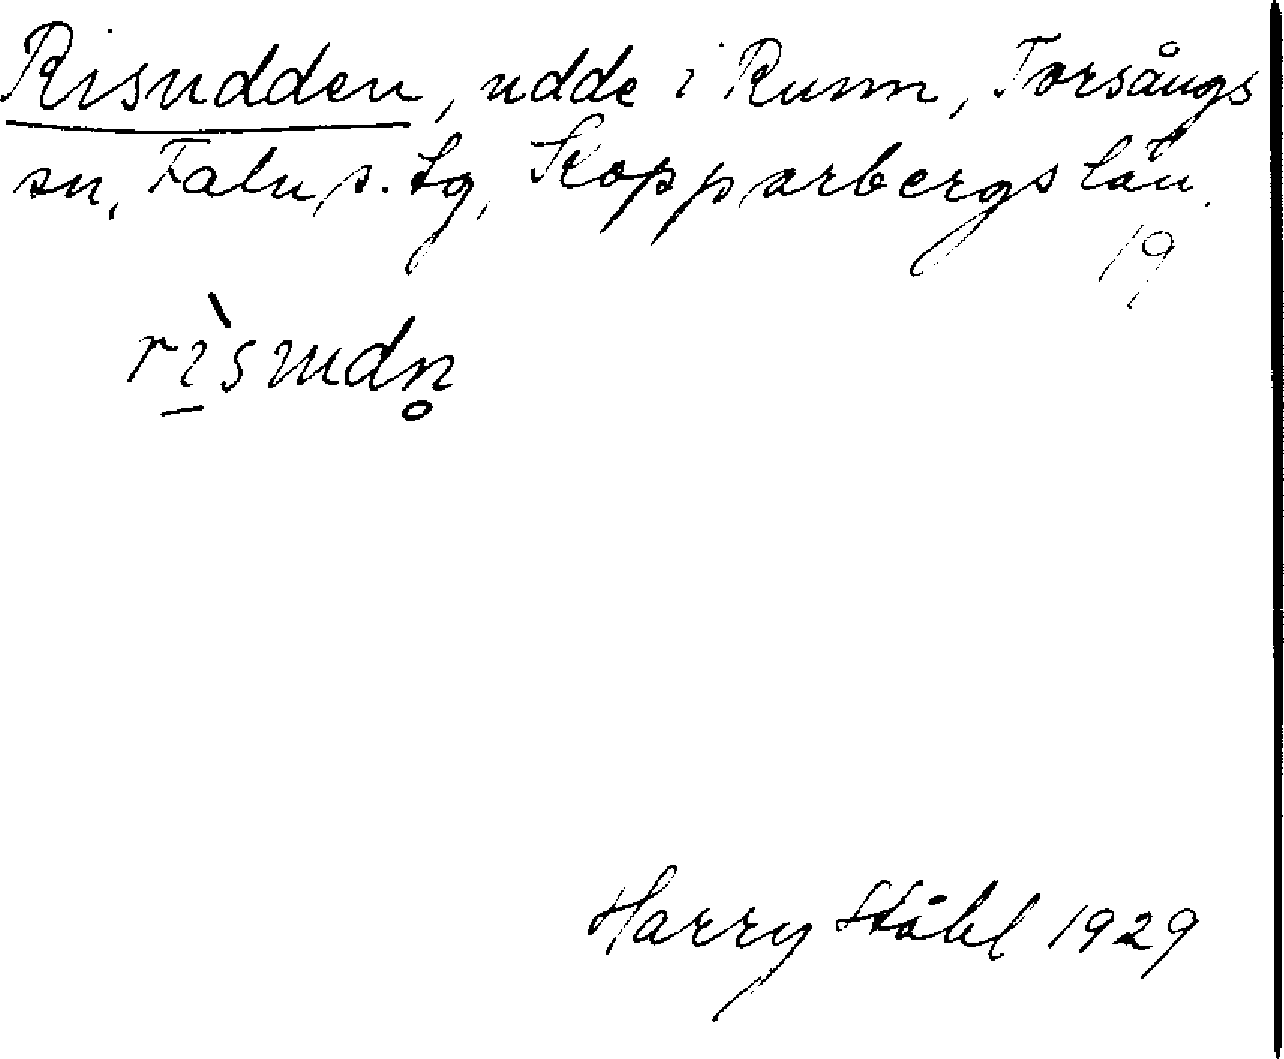 Risudden, udde i Runn, Torsångs
sn, Falu s. tg, Kopparbergs län.
19
rìsɯdn̥
Harry Ståhl 1929